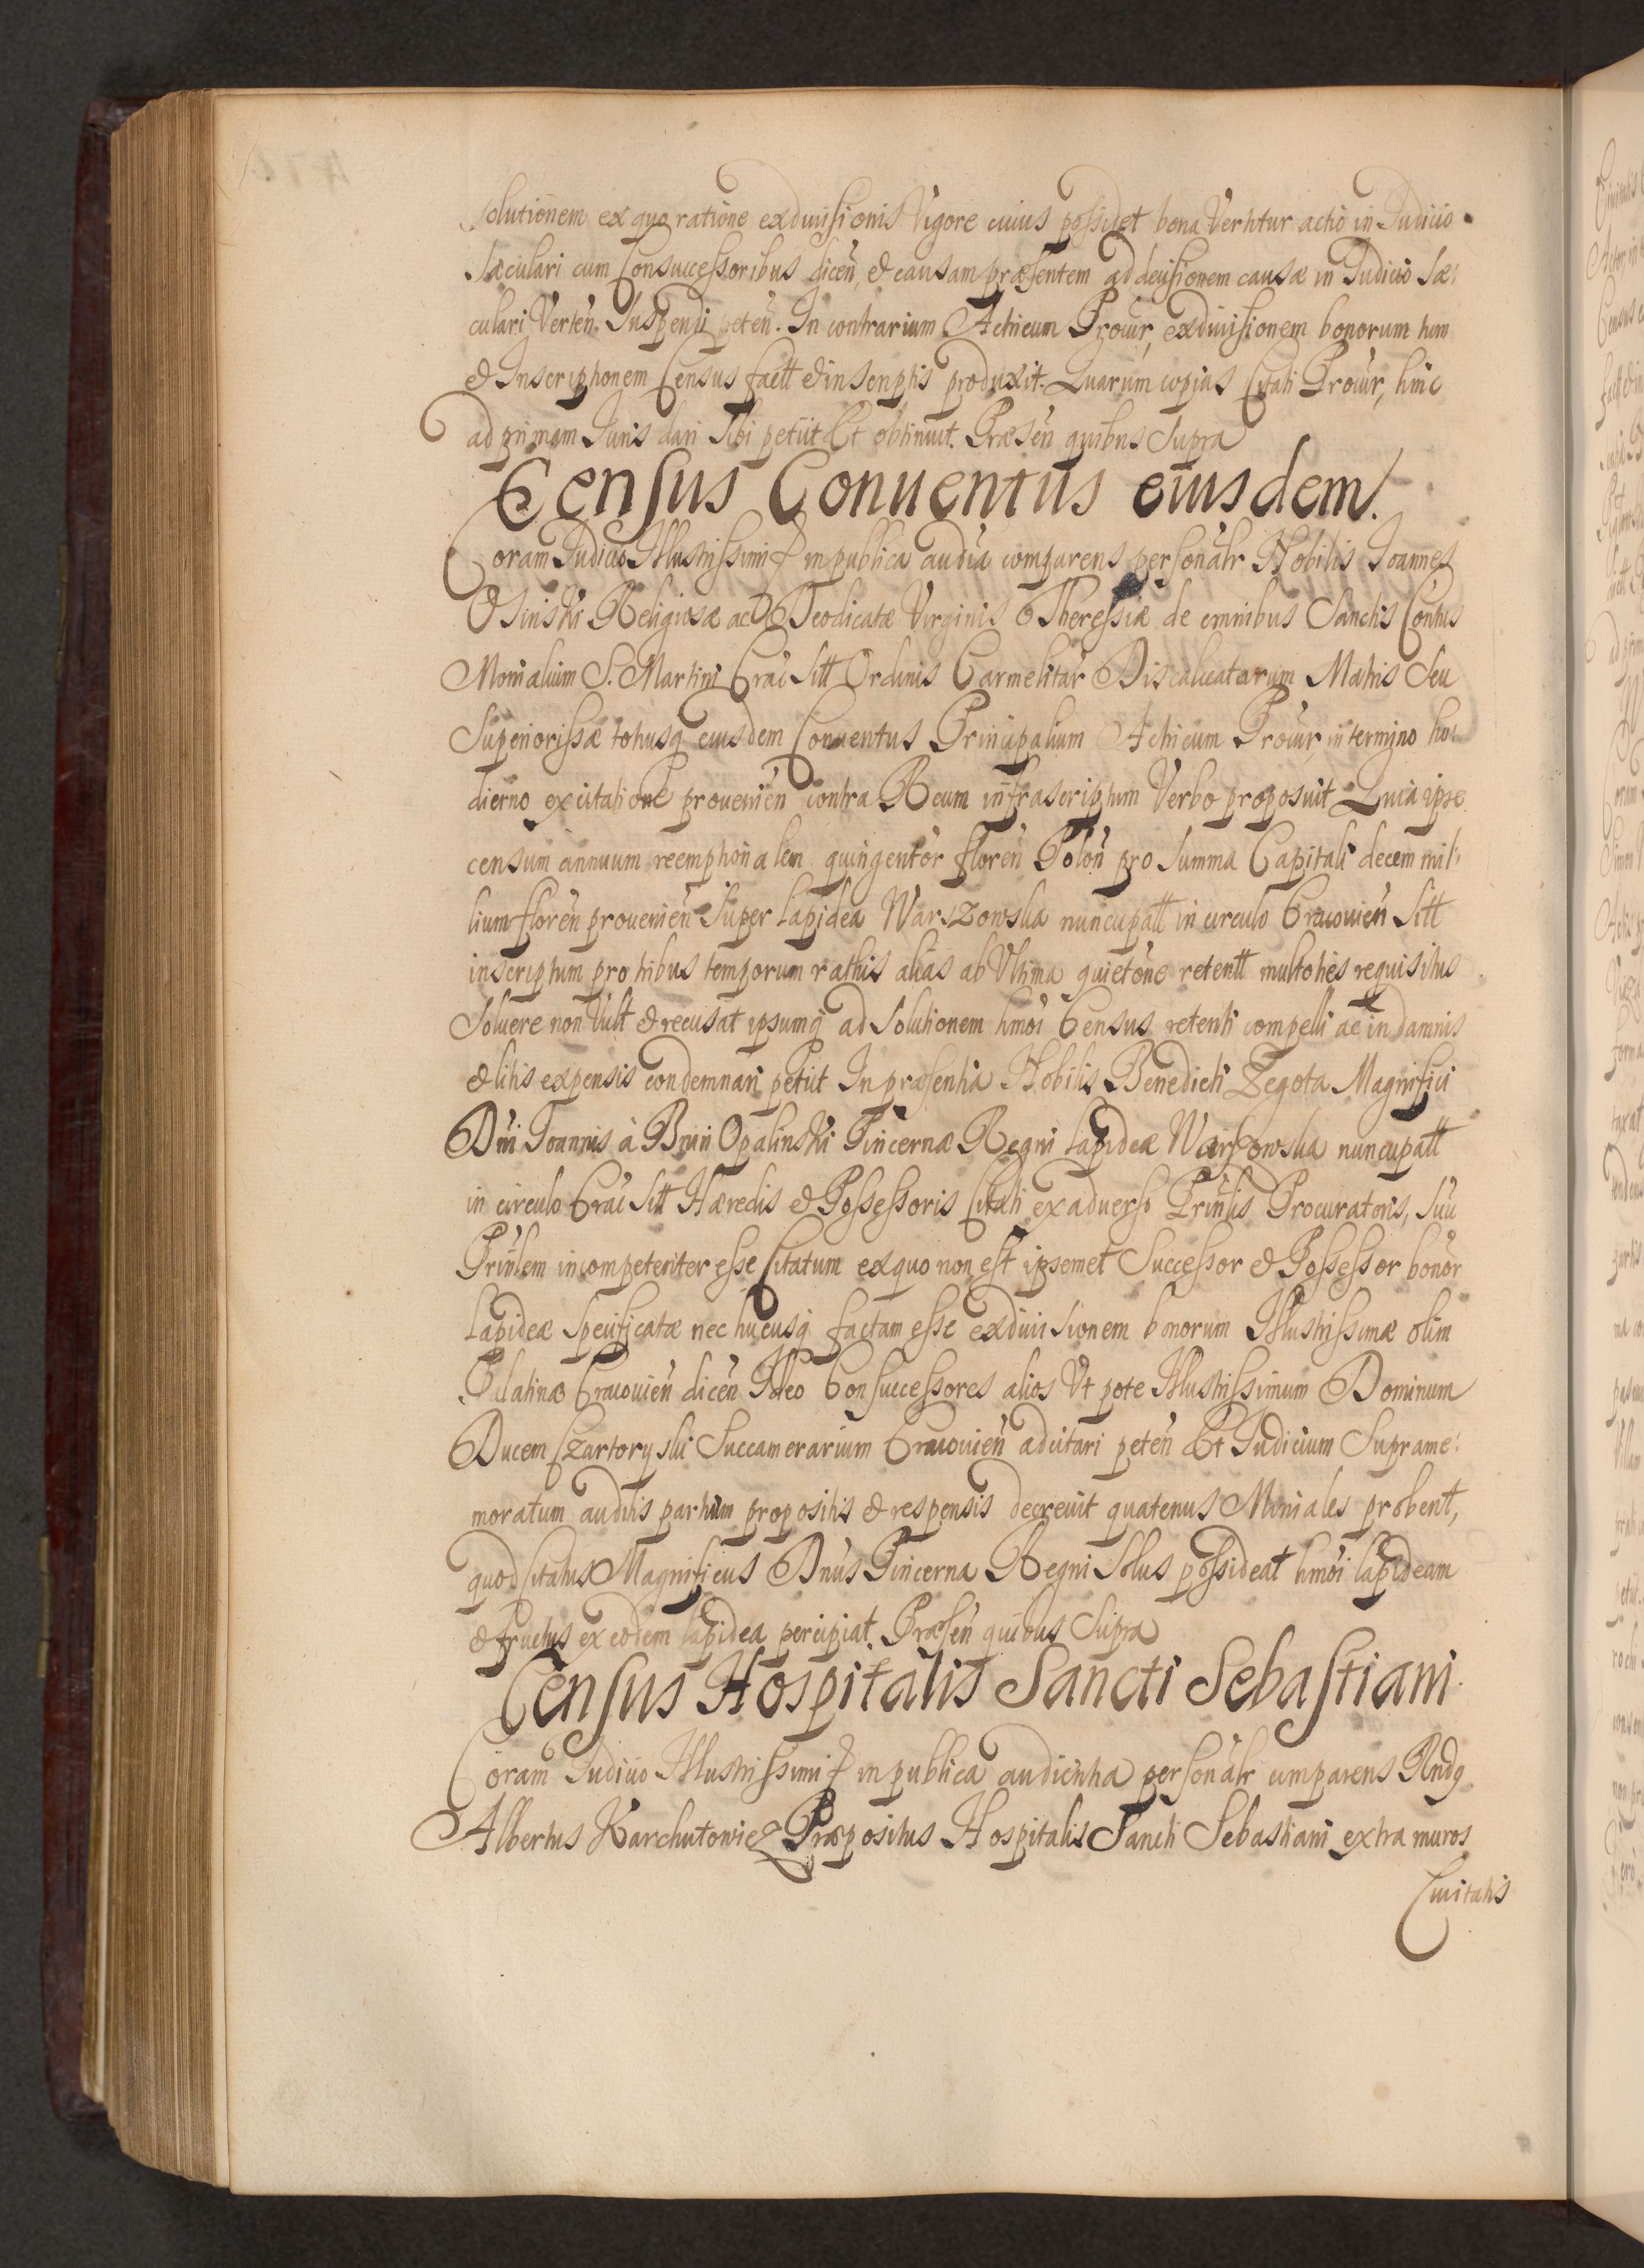 solutionem ex quo ratione exdiuisionis Vigore cuius possidet bona Vertitur actio in Judicio
Sæculari cum Consuccessoribus dicen̄, & causam præsentem ad decisionem causæ in Judicio Sæ:
culari Verten̄. Suspendi peten̄. In contrarium Actricum Procur̄, exdiuisionem bonorum tum
& Inscriptionem Census factt & in scriptis produxit. Quarum copias Citati Procur̄, hinc
ad primam Juris dari Sibi petiit Et obtinuit. Præsen̄ quibus Supra
Census Conuentus eiusdem.
Coram Judicio Illustrissimi & in publica audia comparens personaltr Nobilis Joannes
Osinski Religiosæ ac Deodicatæ Virginis Theressiæ de omnibus Sanctis Contus
Monialium S. Martini Crac̄ Sitt Ordinis Carmelitar̄ Discalceatarum Matris Seu
Superiorissæ totiusq eiusdem Conuentus Principalium Actricum Procur̄, in termino ho:
dierno ex citatione prouenien̄ contra Reum infrascriptum Verbo proposuit Quia ipse
censum annuum reemptionalem quingentor̄ floren̄ Polon̄ pro Summa Capitali decem mil:
lium floren̄ prouenien̄ Super lapidea Warszowska nuncupatt in circulo Cracouien̄ Sitt
inscriptum pro tribus temporum rattis alias ab Vltima quietōne retentt multoties requisitus
Soluere non Vult & recusat ipsumq ad Solutionem hmōi Census retenti compelli ac in damnis
& litis expensis condemnari petiit In præsentia Nobilis Benedicti Zegota Magnifici
Dn̄i Joannis à Bnin Opalinski Pincernæ Regni lapideæ Warszowska nuncupatt
in circulo Crac̄ Sitt Hæredis & Possessoris Citati ex aduerso Prin̄lis Procuratoris, Suū
Prin̄lem incompetenter esse Citatum ex quo non est ipsemet Successor & Possessor bonor̄
lapideæ Specificatæ nec hucusq factam esse exdiuisionem bonorum Illustrissimæ olim
Palatinæ Cracouien̄ dicen̄ Ideo Consuccessores alios Vt pote Illustrissimum Dominum
Ducem Czartoryski Succamerarium Cracouien̄ adcitari peten̄ Et Judicium Suprame:
moratum auditis partium propositis & responsis decreuit quatenus Moniales probent,
quod Citatus Magnificus Dn̄us Pincerna Regni Solus possideat hmōi lapideam
& fructus ex eodem lapidea percipiat. Præsen̄ quibus Supra
Census Hospitalis Sancti Sebastiani.
Coram Judicio Illustrissimi & in publica audientia personaltr comparens Rndq
Albertus Karchutowicz Præpositus Hospitalis Sancti Sebastiani extra muros
Ciuitatis